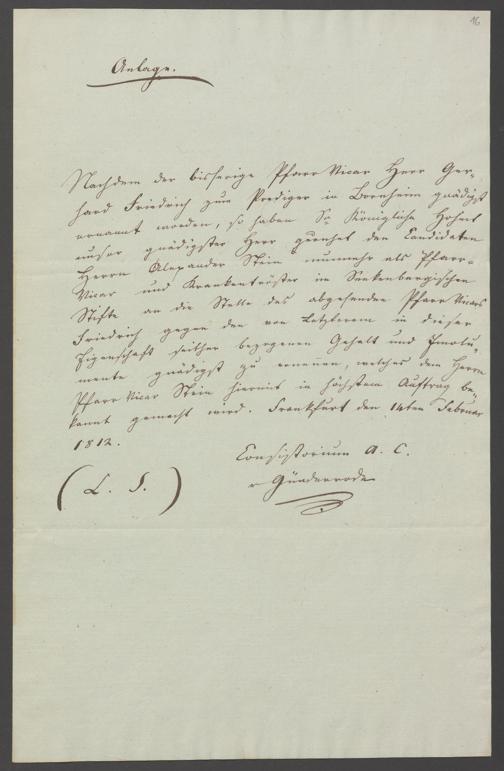 16
Anlage.
Nachdem der bisherige Pfarr Vicar Herr Ger-
hard Friedrich zum Prediger in Bornheim gnädigst
ernannt worden, so haben Se Königliche Hoheit
unser gnädigster Herr geruhet den Candidaten
Herrn Alexander Stein nunmehr als Pfarr-
Vicar und Krankentröster im Senkenbergischen
Stifte an die Stelle des abgehenden Pfarr Vicars
Friedrich gegen den von Letzterem in dieser
Eigenschaft seither bezogenen Gehalt und Emolu-
mente gnädigst zu ernennen, welches dem Herrn
Pfarr Vicar Stein hiermit in höchstem Auftrag be-
kannt gemacht wird. Frankfurt den 14ten Februar
1812.
Consistorium A. C.
v Günderrode
(L. S.)